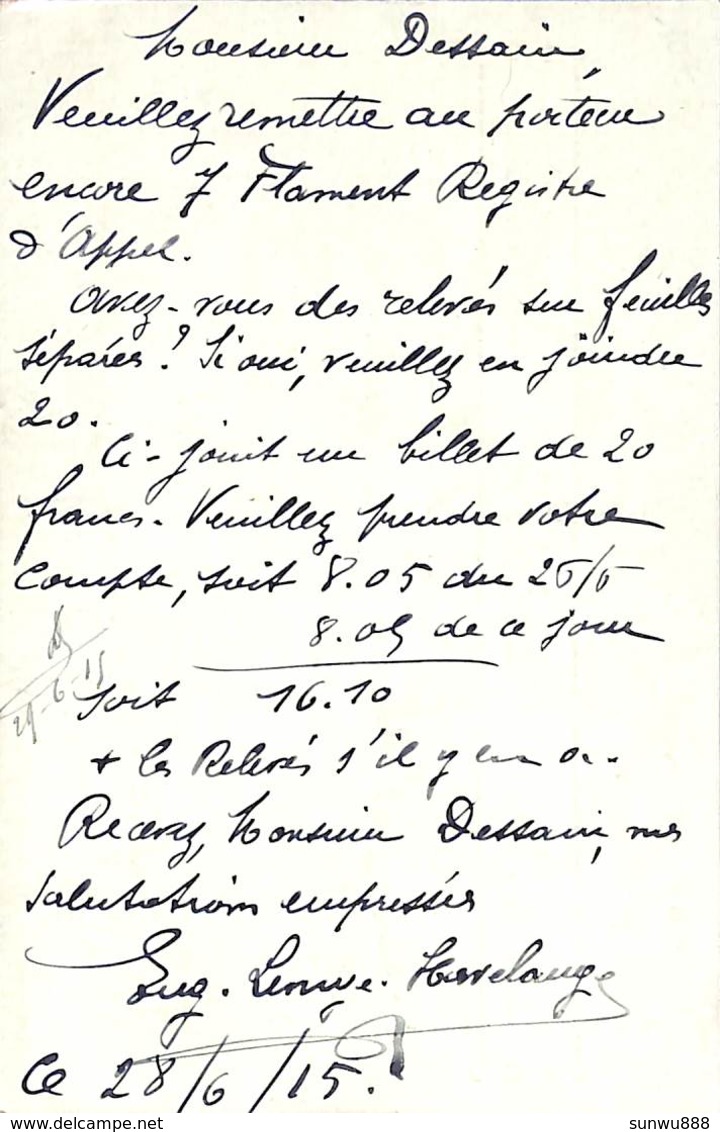 Monsieur Dessain,
Veuillez remettre au porteur
encore 7 Flament Registre
d'Appel.
Avez-vous des relevés sur feuilles
séparées? Si oui, veuillez en joindre
20.
Ci-joint un billet de 20
francs. Veuillez prendre votre
compte, soit 8.05 du 26/6
8.05 de ce jour
29-6-15
soit 16.10
+ les Relevés s'il y en a.
Recevez, Monsieur Dessain, mes
salutations empressées
Eug. Havelange
ce 28/6/15.
sunwu888